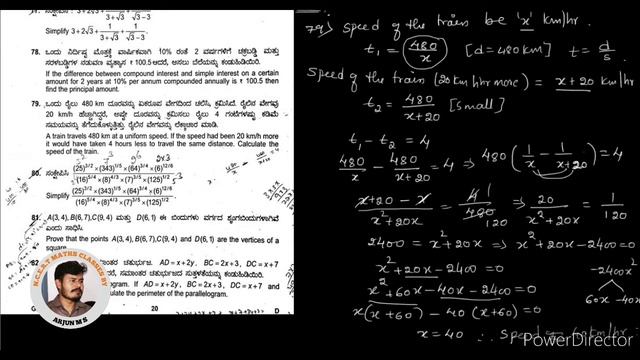 Simplify 3 + 2√3 + 1/(3+√3) + 1/(√3−3)
78. ಒಂದು ನಿರ್ದಿಷ್ಟ ಮೊತ್ತಕ್ಕೆ ವಾರ್ಷಿಕವಾಗಿ 10% ರಂತೆ 2 ವರ್ಷಗಳಿಗೆ ಚಕ್ರಬಡ್ಡಿ ಮತ್ತು
ಸರಳಬಡ್ಡಿಗಳ ನಡುವಣ ವ್ಯತ್ಯಾಸ ₹ 100.5 ಆದರೆ, ಅಸಲು ಬೆಲೆಯನ್ನು ಕಂಡುಹಿಡಿಯಿರಿ.
If the difference between compound interest and simple interest on a certain
amount for 2 years at 10% per annum compounded annually is ₹ 100.5 then
find the principal amount.
79. ಒಂದು ರೈಲು 480 km ದೂರವನ್ನು ಏಕರೂಪ ವೇಗದಿಂದ ಚಲಿಸಿ ಕ್ರಮಿಸಿದೆ. ರೈಲಿನ ವೇಗವು
20 km/h ಹೆಚ್ಚಾಗಿದ್ದರೆ, ಅಷ್ಟೇ ದೂರವನ್ನು ಕ್ರಮಿಸಲು ರೈಲು 4 ಗಂಟೆಗಳಷ್ಟು ಕಡಿಮೆ
ಸಮಯವನ್ನು ತೆಗೆದುಕೊಳ್ಳುತ್ತಿತ್ತು. ರೈಲಿನ ವೇಗವನ್ನು ಲೆಕ್ಕಾಚಾರ ಮಾಡಿ.
A train travels 480 km at a uniform speed. If the speed had been 20 km/h more
it would have taken 4 hours less to travel the same distance. Calculate the
speed of the train.
80. ಸಂಕ್ಷೇಪಿಸಿ : (25)^3/2 × (343)^1/5 × (64)^3/4 × (6)^12/6 / (16)^5/4 × (8)^4/3 × (7)^3/5 × (125)^1/2
Simplify (25)^3/2 × (343)^1/5 × (64)^3/4 × (6)^12/6 / (16)^5/4 × (8)^4/3 × (7)^3/5 × (125)^1/2
81. A(3, 4), B(6, 7), C(9, 4) ಮತ್ತು D(6, 1) ಈ ಬಿಂದುಗಳು ವರ್ಗದ ಶೃಂಗಬಿಂದುಗಳಾಗಿವೆ
ಎಂದು ಸಾಧಿಸಿ.
Prove that the points A(3, 4), B(6, 7), C(9, 4) and D(6, 1) are the vertices of a
square.
82 ಚತುರ್ಭುಜ. AD = x + 2y, BC = 2x + 3, DC = x + 7 ಮತ್ತು
ಸಮಾಂತರ ಚತುರ್ಭುಜದ ಸುತ್ತಳತೆಯನ್ನು ಕಂಡುಹಿಡಿಯಿರಿ.
gram. If AD = x + 2y, BC = 2x + 3, DC = x + 7 and
ulate the perimeter of the parallelogram.
20 D
N.C.E.R.T MATHS CLASSES BY
ARJUN M S
79) Speed of the train be 'x' km/hr.
t₁ = 480/x [d = 480 km] t = d/s
Speed of the train (20 km/hr more) = x + 20 km/hr
t₂ = 480/(x+20) [small]
t₁ - t₂ = 4
480/x - 480/(x+20) = 4 ⇒ 480(1/x - 1/(x+20)) = 4
(x+20-x)/(x²+20x) = 4 1/480 120 ⇒ 20/(x²+20x) = 1/120
2400 = x²+20x ⇒ x²+20x-2400=0
x²+20x-2400=0 -2400x²
x²+60x-40x-2400=0 60x -40x
x(x+60) -40(x+60)=0
x = 40 ∴ Speed = 40 km/hr
PowerDirector